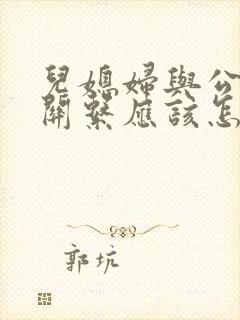 兒媳婦與公
關繫應該怎
郭坑